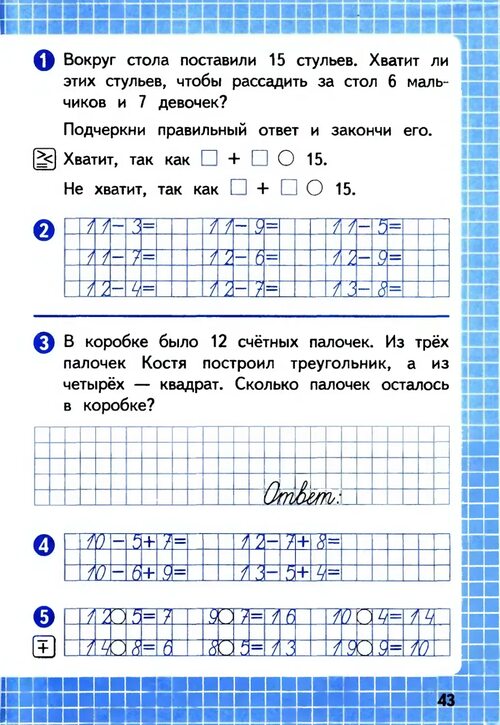 1 Вокруг стола поставили 15 стульев. Хватит ли
этих стульев, чтобы рассадить за стол 6 маль-
чиков и 7 девочек?
Подчеркни правильный ответ и закончи его.
Хватит, так как □ + □ ○ 15.
Не хватит, так как □ + □ ○ 15.
2 11-3= 11-9= 11-5=
11-7= 12-6= 12-9=
12-4= 12-7= 13-8=
3 В коробке было 12 счётных палочек. Из трёх
палочек Костя построил треугольник, а из
четырёх — квадрат. Сколько палочек осталось
в коробке?
Ответ:
4 10-5+7= 12-7+8=
10-6+9= 13-5+4=
5 12○5=7 9○7=16 10○4=14
14○8=6 8○5=13 19○9=10
43